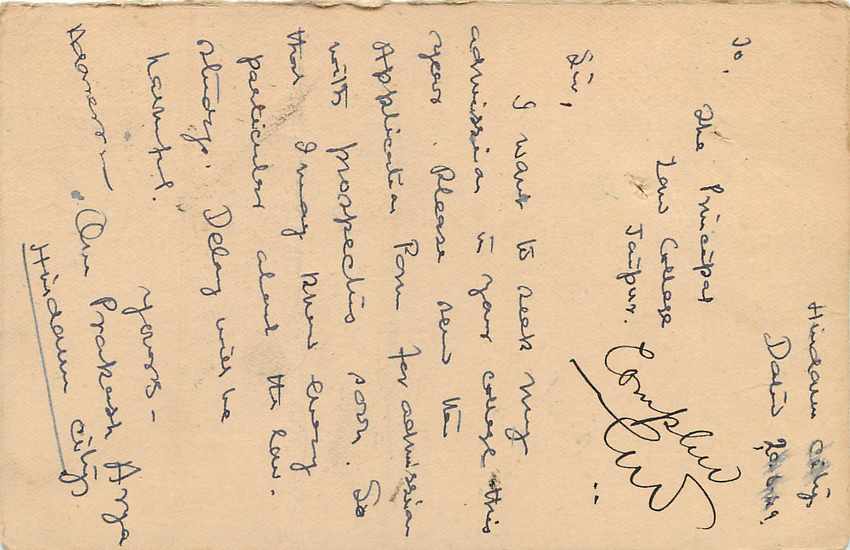 Hindaun City,
To,
The Principal
Law College
Jaipur.
Sir,
I want to seek my
admission in your college this
year. Please send the
Application Form for admission
with prospectus soon. So
that I may know every
particular about the law.
study. Delay will be
harmful.
Yours-
Address- Om Prakash Arya
Hindaun City